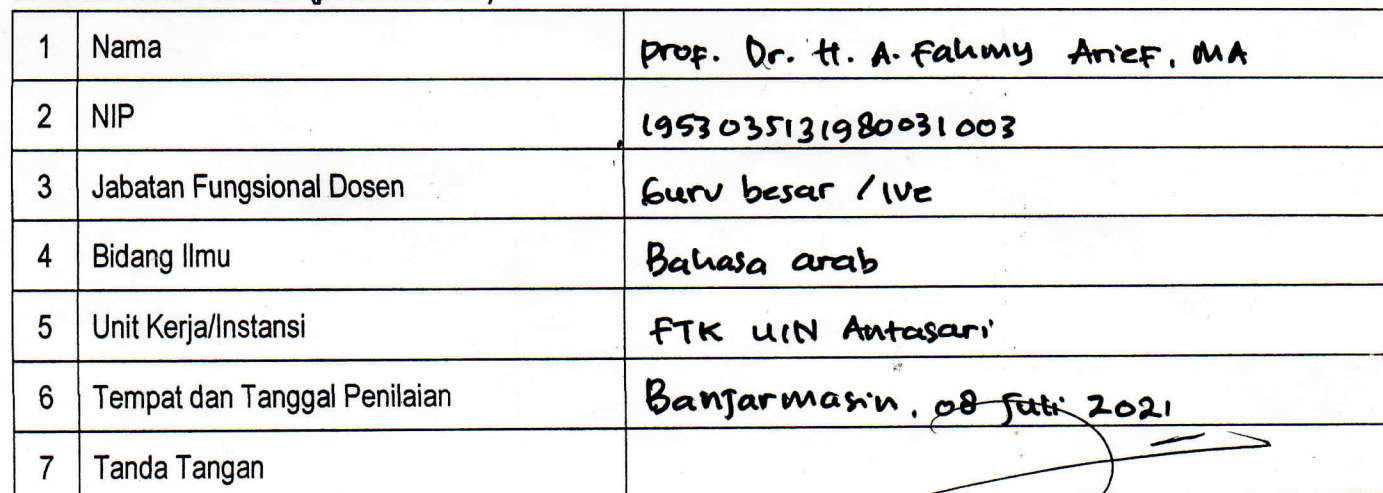 1 Nama Prof. Dr. H. A. Fahmy Arief, MA
2 NIP 1953035131980031003
3 Jabatan Fungsional Dosen Guru besar / IVe
4 Bidang Ilmu Bahasa arab
5 Unit Kerja/Instansi FTK UIN Antasari
6 Tempat dan Tanggal Penilaian Banjarmasin, 08 Juli 2021
7 Tanda Tangan